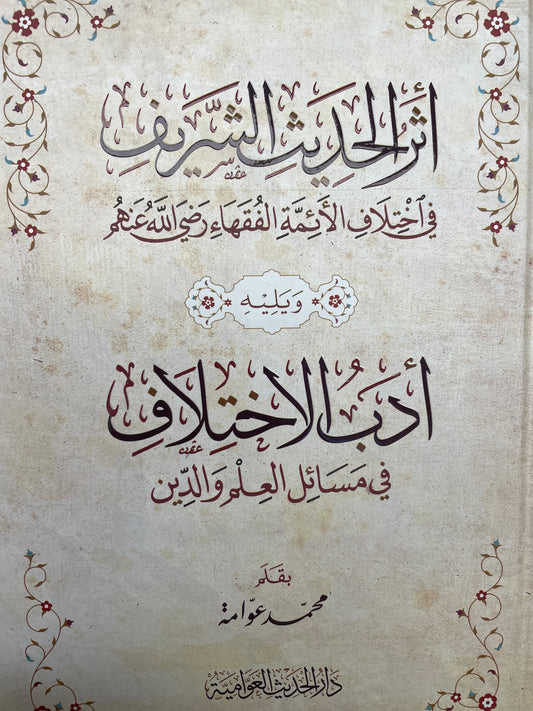 أَثَرُ الحَدِيثِ الشَّرِيفِ
في اَخْتِلَافِ الأَئِمَّةِ الفُقَهَاءِ رَضِيَ اللهُ عَنْهُم
وَيَلِيْهِ
أَدَبُ الاخْتِلَافِ
في مَسَائِلِ العِلْمِ وَالدِّين
بِقَلَم
محمّد عوّامة
دَارُ الحَدِيْثِ العَوَّامِيَّة